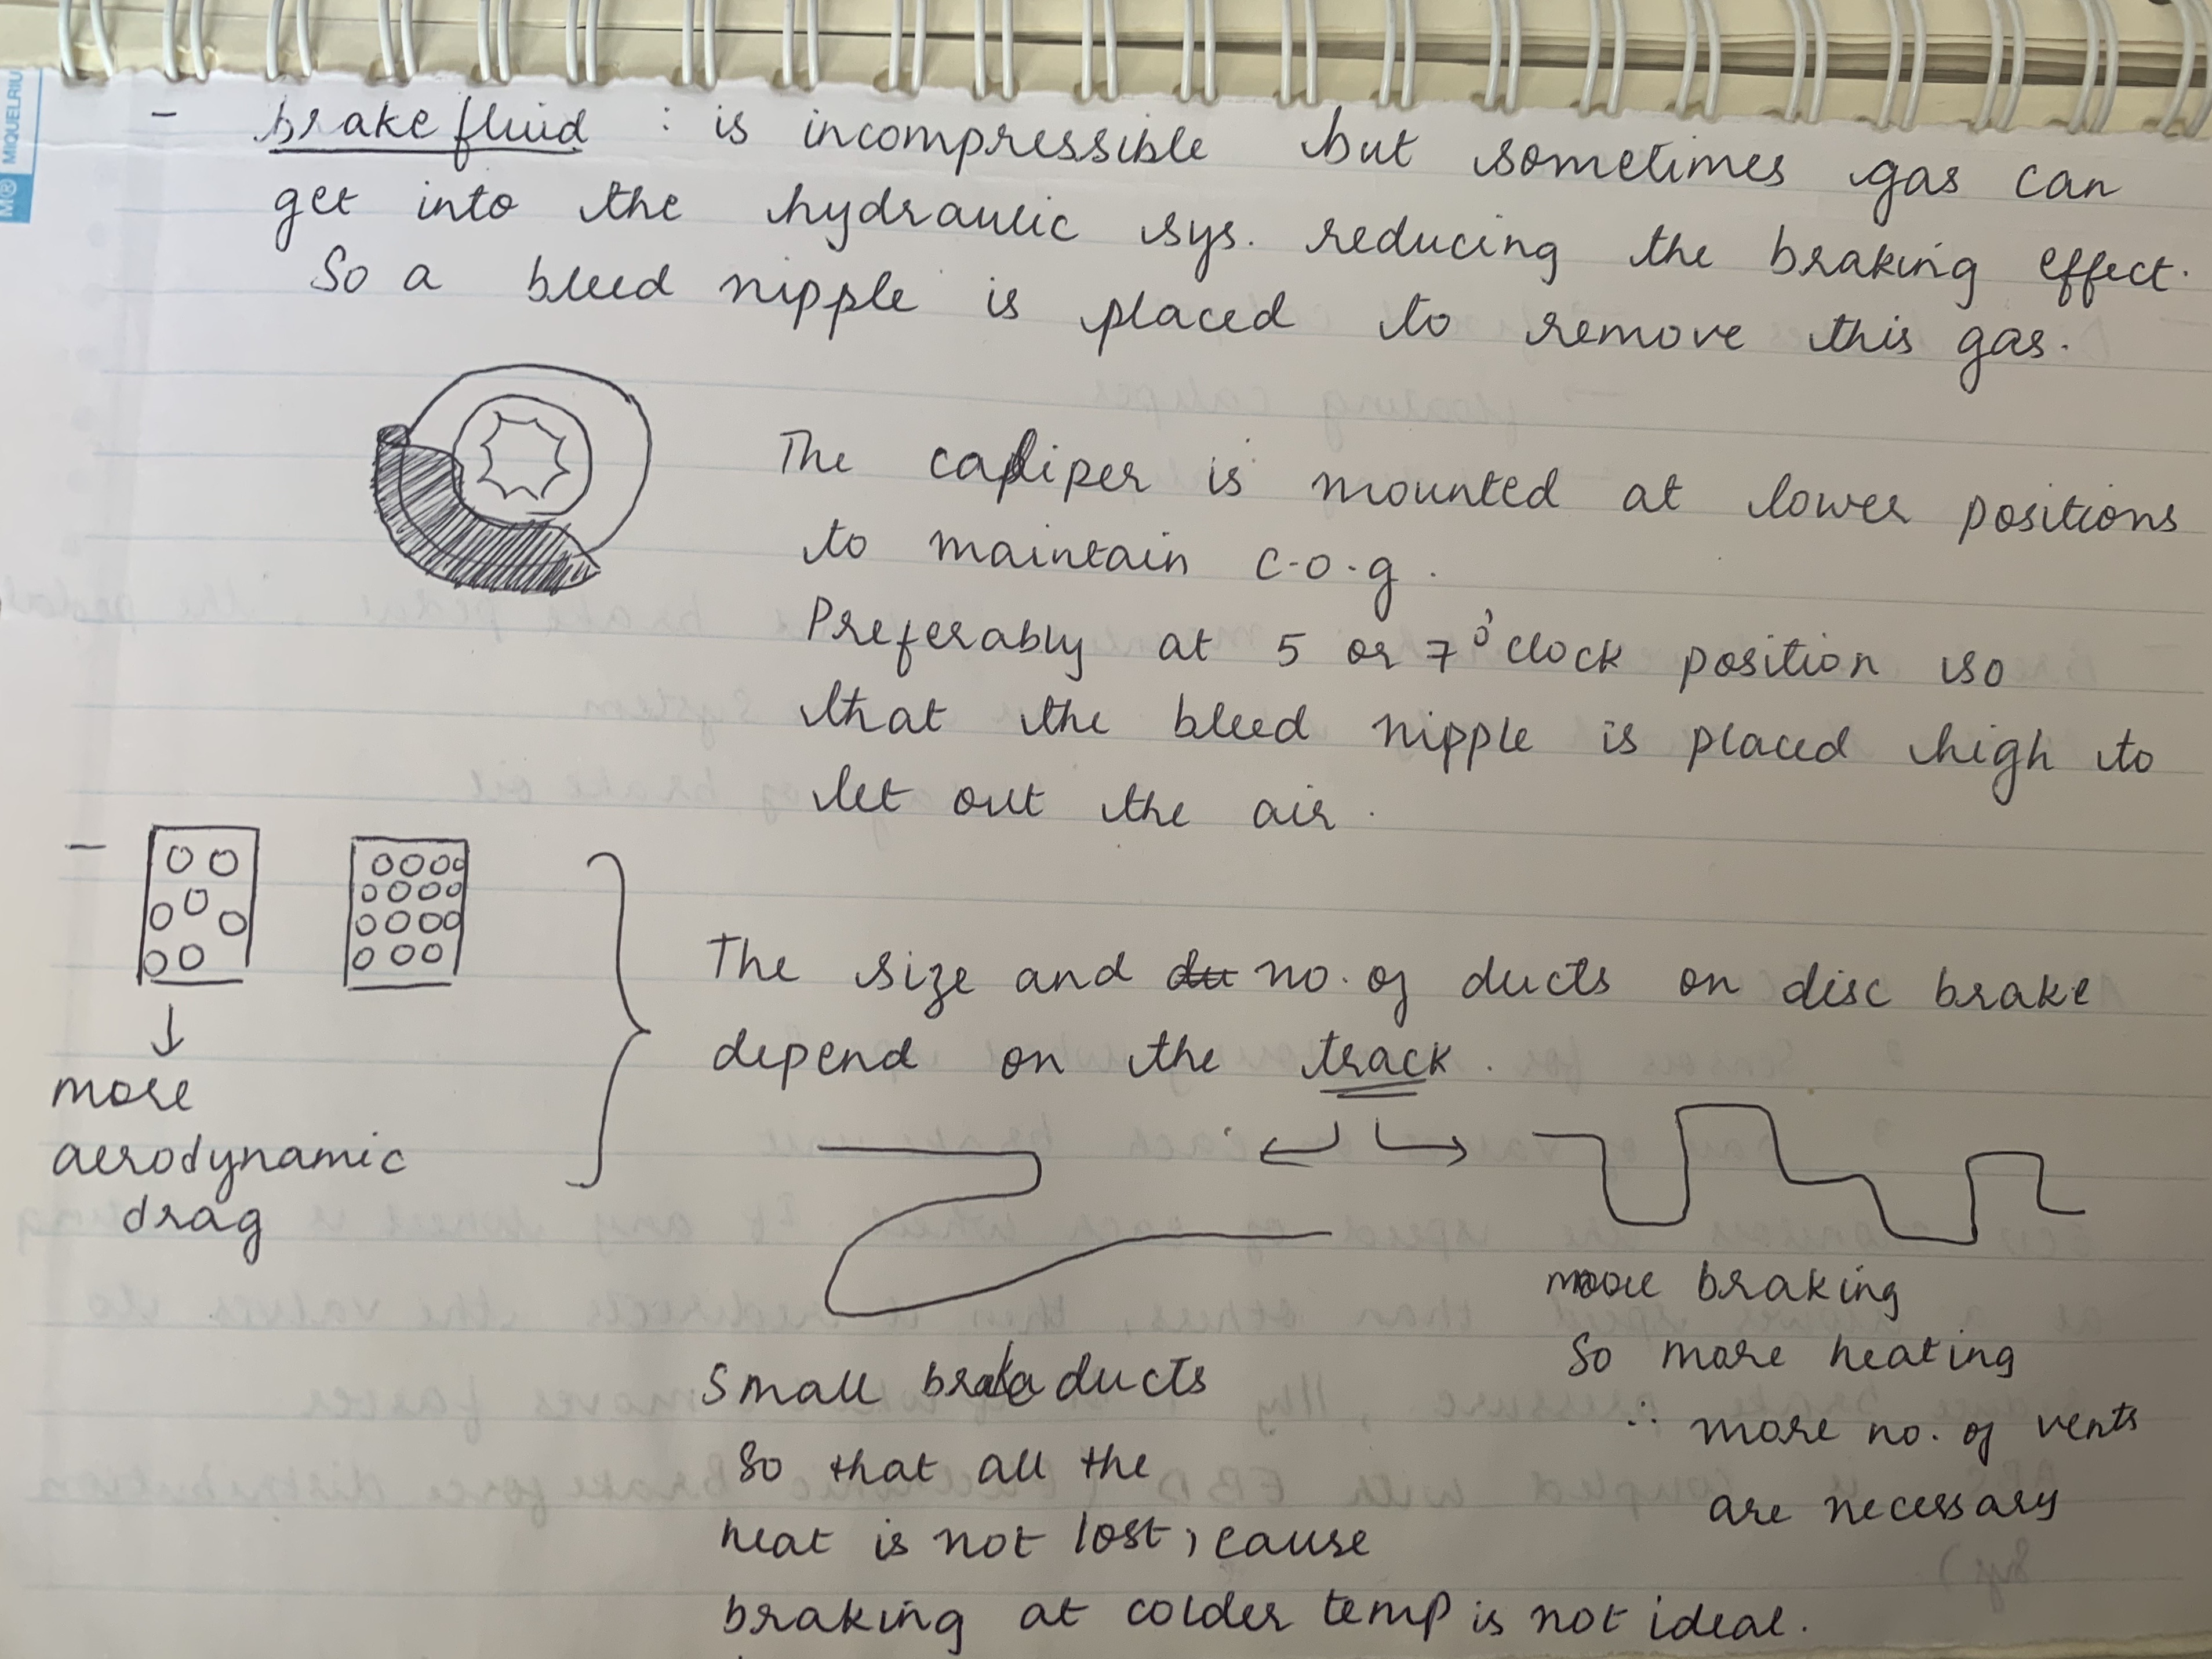 MIQUELRIU
- brake fluid : is incompressible but sometimes gas can
get into the hydraulic sys. reducing the braking effect.
So a bleed nipple is placed to remove this gas.
The caliper is mounted at lower positions
to maintain c.o.g.
Preferably at 5 or 7 o'clock position so
that the bleed nipple is placed high to
let out the air.
-
The size and du no. of ducts on disc brake
depend on the track.
↓
more
aerodynamic
drag
Small brake ducts
So that all the
heat is not lost, cause
braking at colder temp is not ideal.
more braking
So more heating
∴ more no. of vents
are necessary